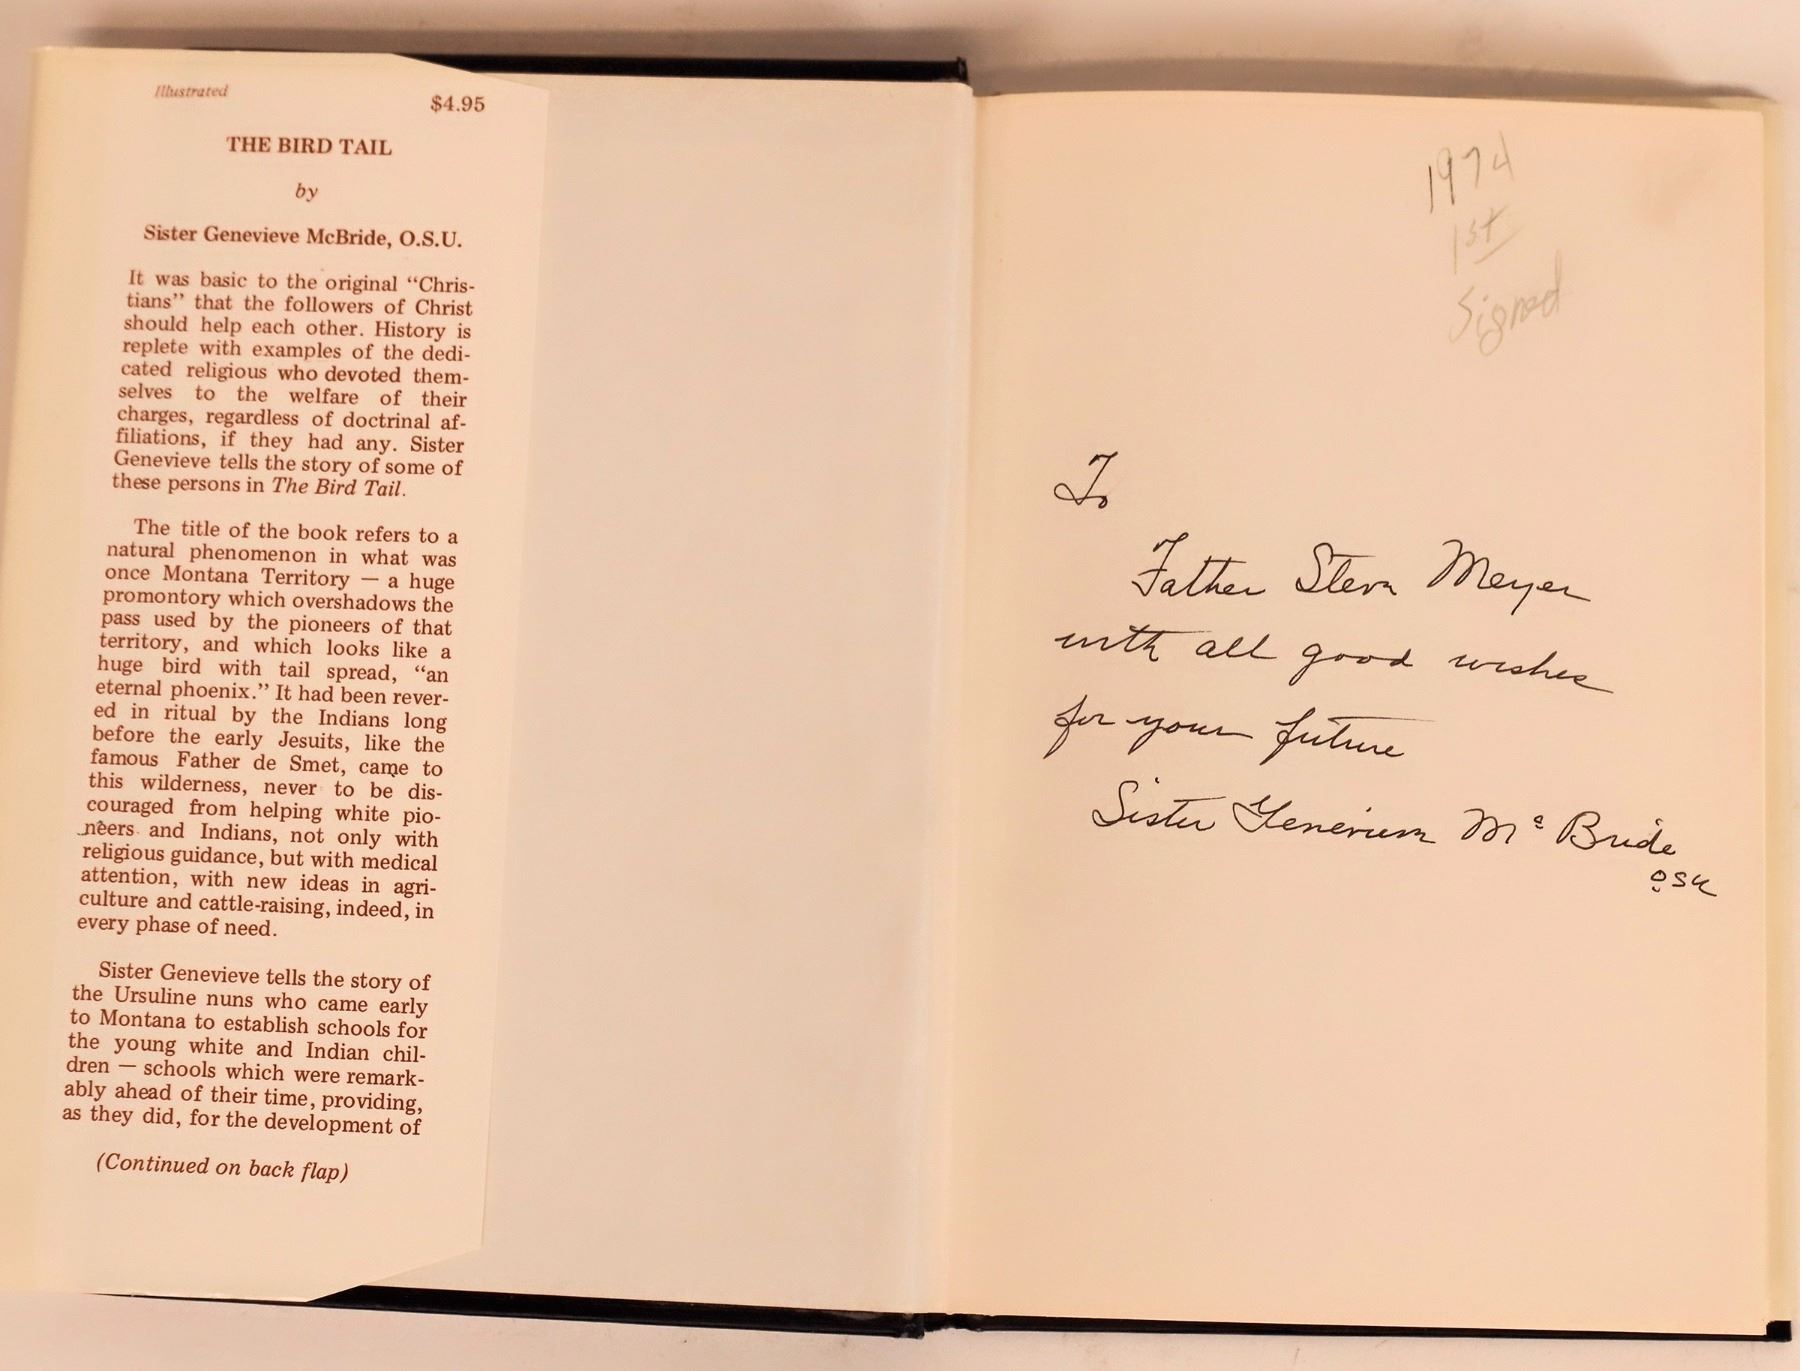 Illustrated
$4.95
THE BIRD TAIL
by
Sister Genevieve McBride, O.S.U.
It was basic to the original “Chris-
tians” that the followers of Christ
should help each other. History is
replete with examples of the dedi-
cated religious who devoted them-
selves to the welfare of their
charges, regardless of doctrinal af-
filiations, if they had any. Sister
Genevieve tells the story of some of
these persons in The Bird Tail.
The title of the book refers to a
natural phenomenon in what was
once Montana Territory — a huge
promontory which overshadows the
pass used by the pioneers of that
territory, and which looks like a
huge bird with tail spread, “an
eternal phoenix.” It had been rever-
ed in ritual by the Indians long
before the early Jesuits, like the
famous Father de Smet, came to
this wilderness, never to be dis-
couraged from helping white pio-
neers and Indians, not only with
religious guidance, but with medical
attention, with new ideas in agri-
culture and cattle-raising, indeed, in
every phase of need.
Sister Genevieve tells the story of
the Ursuline nuns who came early
to Montana to establish schools for
the young white and Indian chil-
dren — schools which were remark-
ably ahead of their time, providing,
as they did, for the development of
(Continued on back flap)
1974
1st
Signed
To
Father Steve Meyer
with all good wishes
for your future
Sister Genevieve Mc Bride
osu